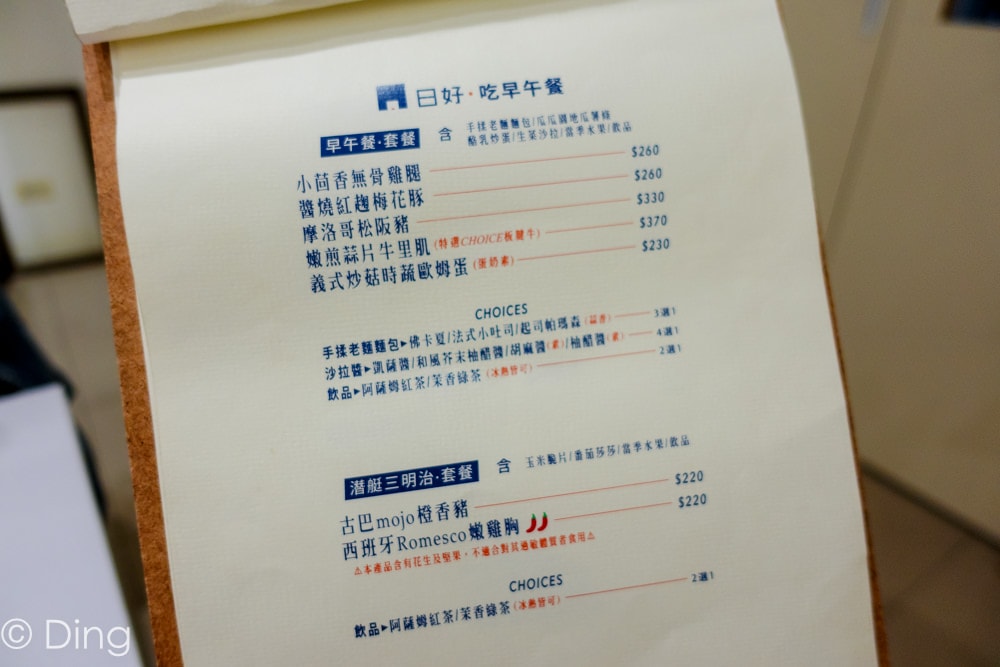 日好·吃早午餐
早午餐·套餐 含 手揉老麵麵包/瓜瓜園地瓜薯條
酪乳炒蛋/生菜沙拉/當季水果/飲品
小茴香無骨雞腿 $260
醬燒紅麴梅花豚 $260
摩洛哥松阪豬 $330
嫩煎蒜片牛里肌(特選CHOICE板腱牛) $370
義式炒菇時蔬歐姆蛋(蛋奶素) $230
CHOICES
手揉老麵麵包▶佛卡夏/法式小吐司/起司帕瑪森(蒜香) 3選1
沙拉醬▶凱薩醬/和風芥末柚醋醬/胡麻醬(素)/柚醋醬(素) 4選1
飲品▶阿薩姆紅茶/茉香綠茶(冰熱皆可) 2選1
潛艇三明治·套餐 含 玉米脆片/番茄莎莎/當季水果/飲品
古巴mojo橙香豬 $220
西班牙Romesco嫩雞胸 $220
⚠本產品含有花生及堅果，不適合對其過敏體質者食用⚠
CHOICES
飲品▶阿薩姆紅茶/茉香綠茶(冰熱皆可) 2選1
© Ding